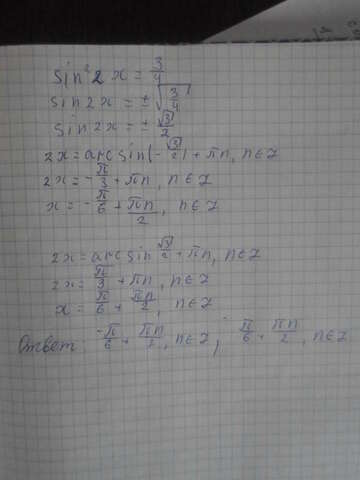 sin² 2x = 3/4
sin 2x = ± √(3/4)
sin 2x = ± √3/2
2x = arcsin(-√3/2) + πn, n ∈ Z
2x = -π/3 + πn, n ∈ Z
x = -π/6 + πn/2, n ∈ Z
2x = arcsin √3/2 + πn, n ∈ Z
2x = π/3 + πn, n ∈ Z
x = π/6 + πn/2, n ∈ Z
Ответ: -π/6 + πn/2, n ∈ Z; π/6 + πn/2, n ∈ Z